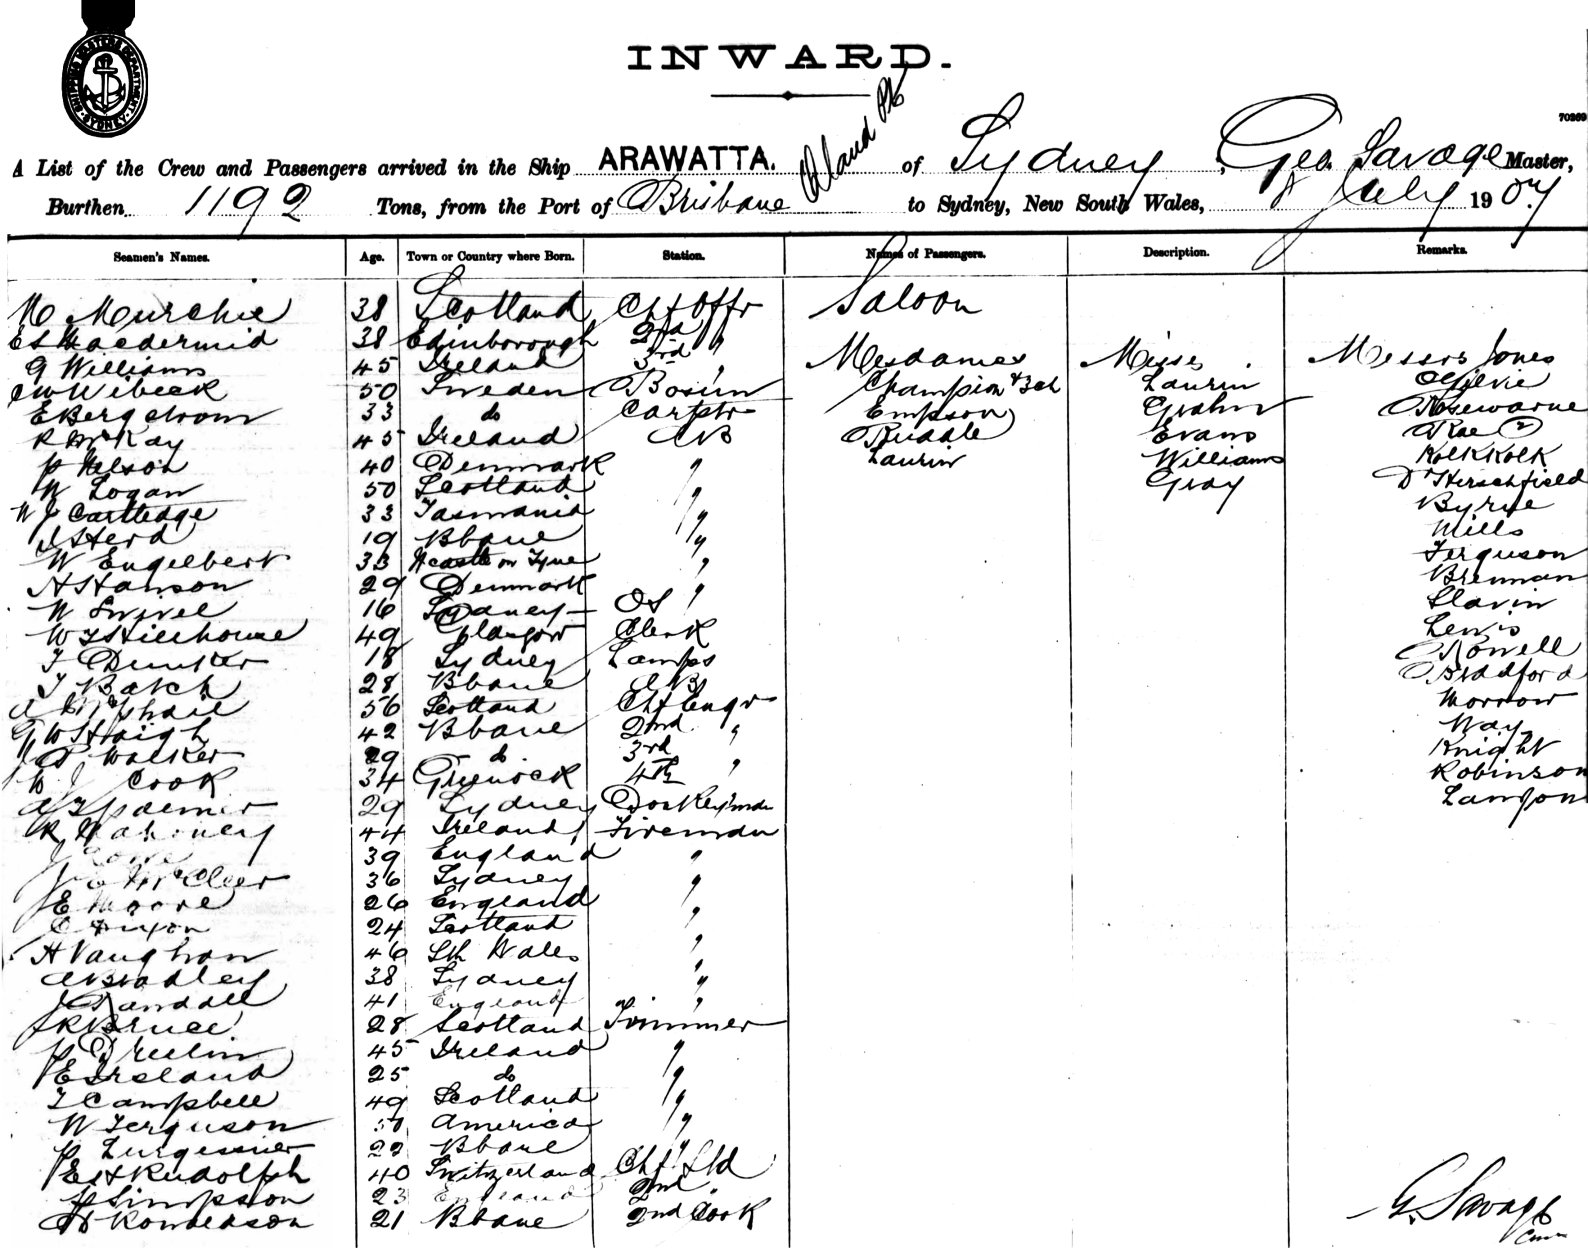 SHIPPING MASTERS DEPARTMENT
SYDNEY
INWARD.
70269
A List of the Crew and Passengers arrived in the Ship ARAWATTA. of Sydney, Geo. Savage Master,
Burthen 1192 Tons, from the Port of Brisbane to Sydney, New South Wales, 8 July 1907
Seamen's Names. Age. Town or Country where Born. Station. Names of Passengers. Description. Remarks.
M Murchie 38 Scotland Chf Offr Saloon
E S Macdermid 38 Edinborough 2nd "
G Williams 45 Ireland 3rd " Mesdames Misses Messrs Jones
C W Wibeck 50 Sweden Bosun Champion & 3ch Laurin Ogilvie
E Bergstrom 33 do Carptr Empson Grahn Rosewarne
R McKay 45 Ireland AB Ruddle Evans Rae (2)
P Nelson 40 Denmark " Laurin Williams Kolkkolk
W Logan 50 Scotland " Gray Dr Hirschfield
W J Cartledge 33 Tasmania " Byrne
J Herd 19 Bbane " Mills
W Engelbert 33 Ncastle on Tyne " Ferguson
H Hanson 29 Denmark " Brennan
W Swivel 16 Sydney OS Slavin
W J Hillhouse 49 Glasgow Clerk Lewis
F Dunker 18 Sydney Lamps Rowell
J Balch 28 Bbane AB Bradford
McPhail 56 Scotland Chf Engr Morrow
G W Haigh 42 Bbane 2nd " Way
Walker 29 do 3rd Knight
W J Cook 34 Greenock 4th " Robinson
A J Palmer 29 Sydney Donkeyman Lawson
R Mahoney 44 Ireland Fireman
J Lowe 39 England "
McCleer 36 Sydney "
E Moore 26 England "
24 Scotland "
H Vaughan 46 Sth Wales "
A Bradley 38 Sydney "
J Randall 41 England "
J R Bruce 28 Scotland Trimmer
P Dreelin 45 Ireland "
P E Ireland 25 do "
J Campbell 49 Scotland "
W Ferguson 50 America "
P 22 Bbane "
E H Rudolph 40 Switzerland Chf Std
Simpson 23 England 2nd "
Ronderson 21 Bbane 2nd Cook
G. Savage